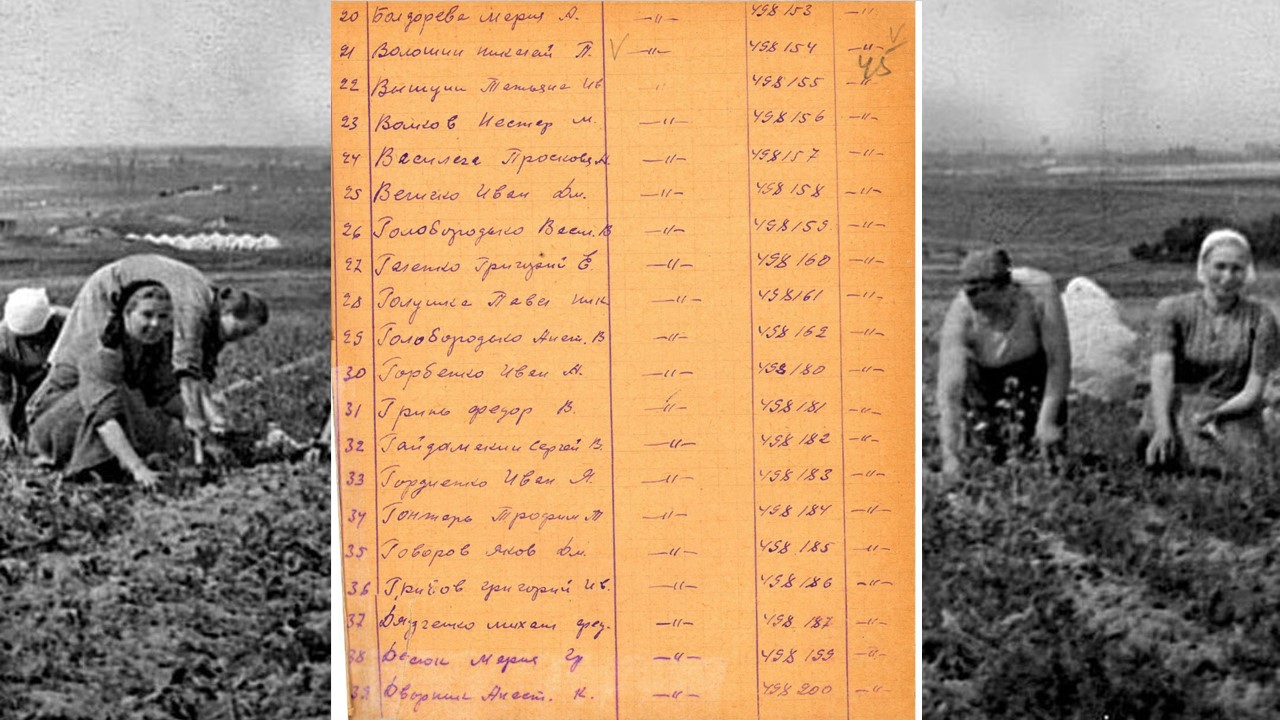 20 Бондарева Мария А. —"— 498153 —"—
21 Волошин Николай П. V —"— 498154 —"— V
45
22 Вытуни Татьяна Ив " 498155 "
23 Волков Нестер М. —"— 498156 —"—
24 Василега Просковья М. —"— 498157 —"—
25 Величко Иван Дм. —"— 498158 —"—
26 Головородько Васил. В —"— 498159 —"—
27 Гагенко Григорий Е. —"— 498160 —"—
28 Голушка Павел Ник —"— 498161 —"—
29 Головородько Анаст. В —"— 498162 —"—
30 Горбенко Иван А. —"— 498180 —"—
31 Гринь Федор В. —"— 498181 —"—
32 Гайдамакин Сергей В. —"— 498182 —"—
33 Гордиенко Иван Я. —"— 498183 —"—
34 Гонжарь Трофим Т —"— 498184 —"—
35 Говоров Яков Дм. —"— 498185 —"—
36 Григорий Ив. —"— 498186 —"—
37 Дядченко Михаил Фед. —"— 498187 —"—
38 Мария Гр —"— 498199 —"—
39 Дворник Анаст. К. —"— 498200 —"—